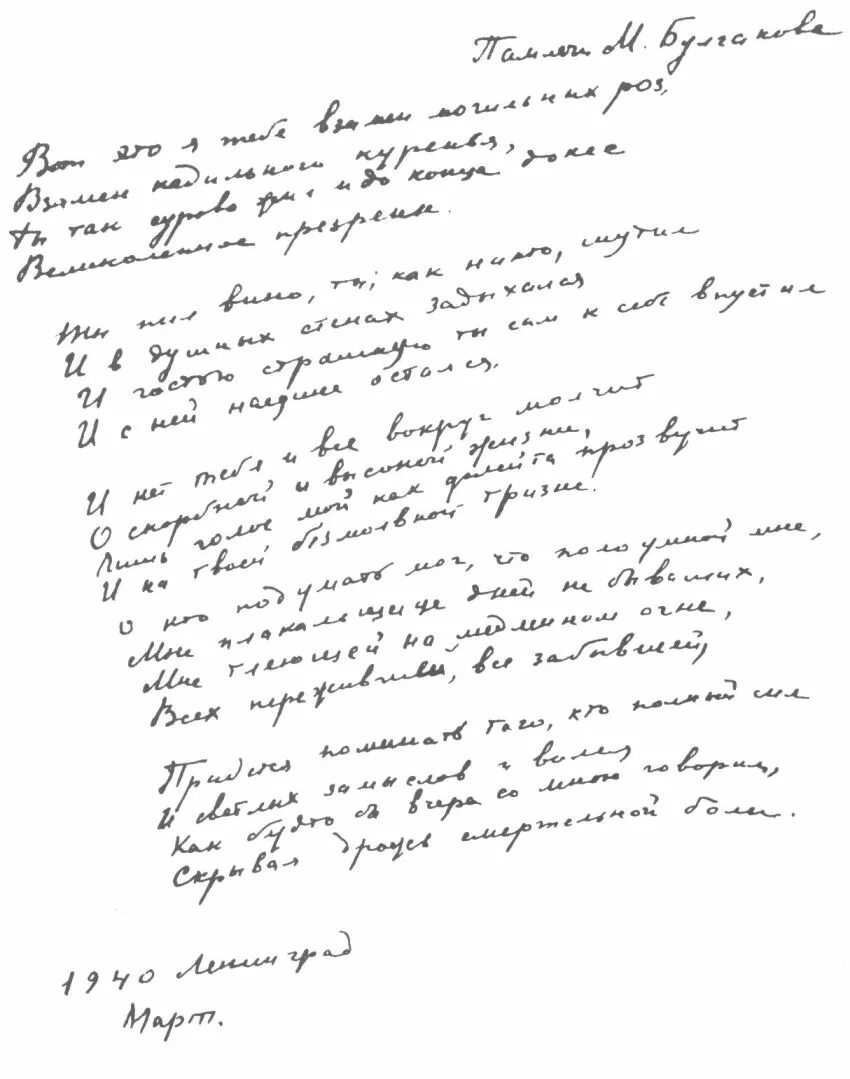 Памяти М. Булгакова
Вот это я тебе взамен могильных роз,
Взамен кадильного куренья,
Ты так сурово жил и до конца донес
Великолепное презренье.
Ты пил вино, ты, как никто, шутил
И в душных стенах задыхался
И гостью страшную ты сам к себе впустил
И с ней наедине остался.
И нет тебя и все вокруг молчит
О скорбной и высокой жизни,
Лишь голос мой как флейта прозвучит
И на твоей безмолвной тризне.
О кто подумать мог, что полоумной мне,
Мне плакальщице дней не бывалых,
Мне тлеющей на медленном огне,
Всех пережившей, все забывшей,
Придется поминать того, кто полный сил
И светлых замыслов и воли,
Как будто бы вчера со мною говорил,
Скрывая дрожь смертельной боли.
1940 Ленинград
Март.